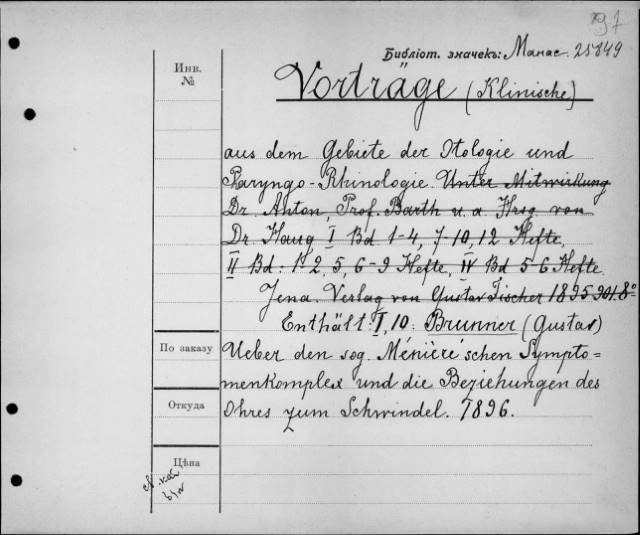 97
Библіот. значекъ: Манас. 25849
Инв.
№
Vorträge (Klinische)
aus dem Gebiete der Otologie und
Pharyngo-Rhinologie. Unter Mitwirkung
Dr. Anton, Prof. Barth u. a. Hrsg. von
Dr. Haug I Bd 1-4, 7-10, 12 Hefte,
II Bd: 1-2, 5, 6-9 Hefte, IV Bd 5-6 Hefte.
Jena. Verlag von Gustav Fischer 1895-901. 8°
Enthält: I, 10: Brunner (Gustav)
По заказу
Ueber den sog. Ménière'schen Sympto=
menkomplex und die Beziehungen des
Откуда
Ohres zum Schwindel. 1896.
Цѣна